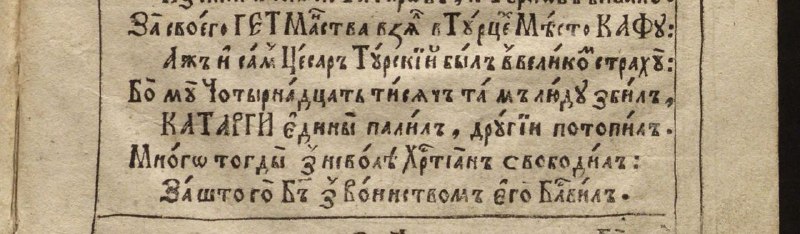 За своего ГЕТМа̃ства взѧ̃ в Ту́рце̃ Мѣсто КАФУ:
Ажъ и҆ са́м̃ Це́саръ Ту́рскїй былъ ꙋ вели́ко̃м стра́хꙋ̀:
Бо̀ мꙋ̀ Чоты́рна́дцать ти́сѧчъ та́мъ лю́дꙋ зби́лъ,
КАТАРГИ є҆ди́ныи пали́лъ, дрꙋ́гїи потопи́лъ.
Мно́гѡ тогды̀ з̾ нево́лѣ Хр̃тїа́нъ свободи́лъ:
За́што го̀ Бг̃ъ з̾ Во́инствомъ є҆го̀ Бл̃вилъ.